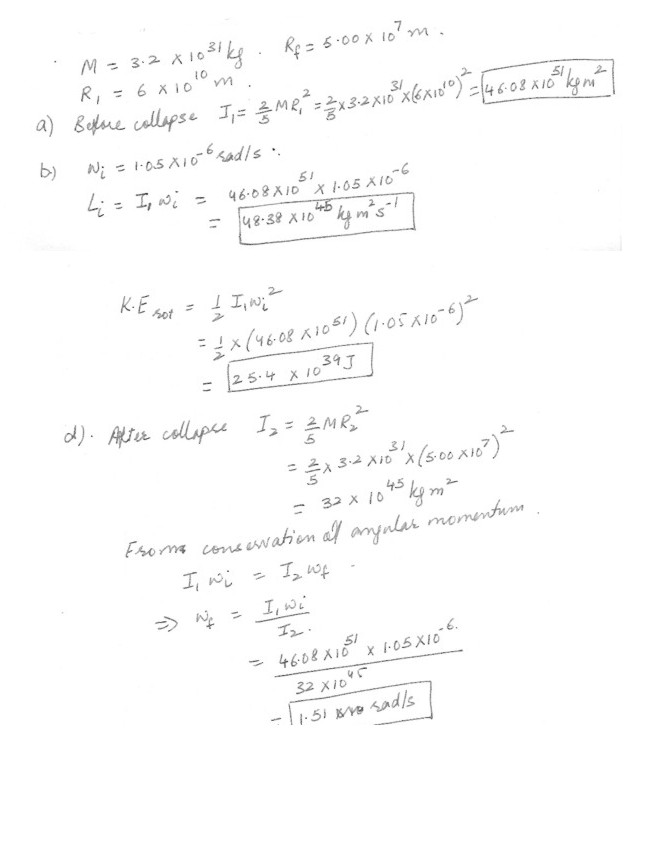 M = 3.2 × 10³¹ kg . R_f = 5.00 × 10⁷ m .
R₁ = 6 × 10¹⁰ m .
a) Before collapse I₁ = 2/5 MR₁² = 2/5 × 3.2 × 10³¹ × (6×10¹⁰)² = 46.08 × 10⁵¹ kg m²
b) ω_i = 1.05 × 10⁻⁶ rad/s .
L_i = I₁ω_i = 46.08 × 10⁵¹ × 1.05 × 10⁻⁶
= 48.38 × 10⁴⁵ kg m² s⁻¹
K.E rot = 1/2 I₁ω_i²
= 1/2 × (46.08 × 10⁵¹) (1.05 × 10⁻⁶)²
= 25.4 × 10³⁹ J
d). After collapse I₂ = 2/5 MR₂²
= 2/5 × 3.2 × 10³¹ × (5.00 × 10⁷)²
= 32 × 10⁴⁵ kg m²
From conservation of angular momentum .
I₁ω_i = I₂ω_f .
⇒ ω_f = I₁ω_i / I₂ .
= 46.08 × 10⁵¹ × 1.05 × 10⁻⁶ / 32 × 10⁴⁵
= 1.51 rad/s